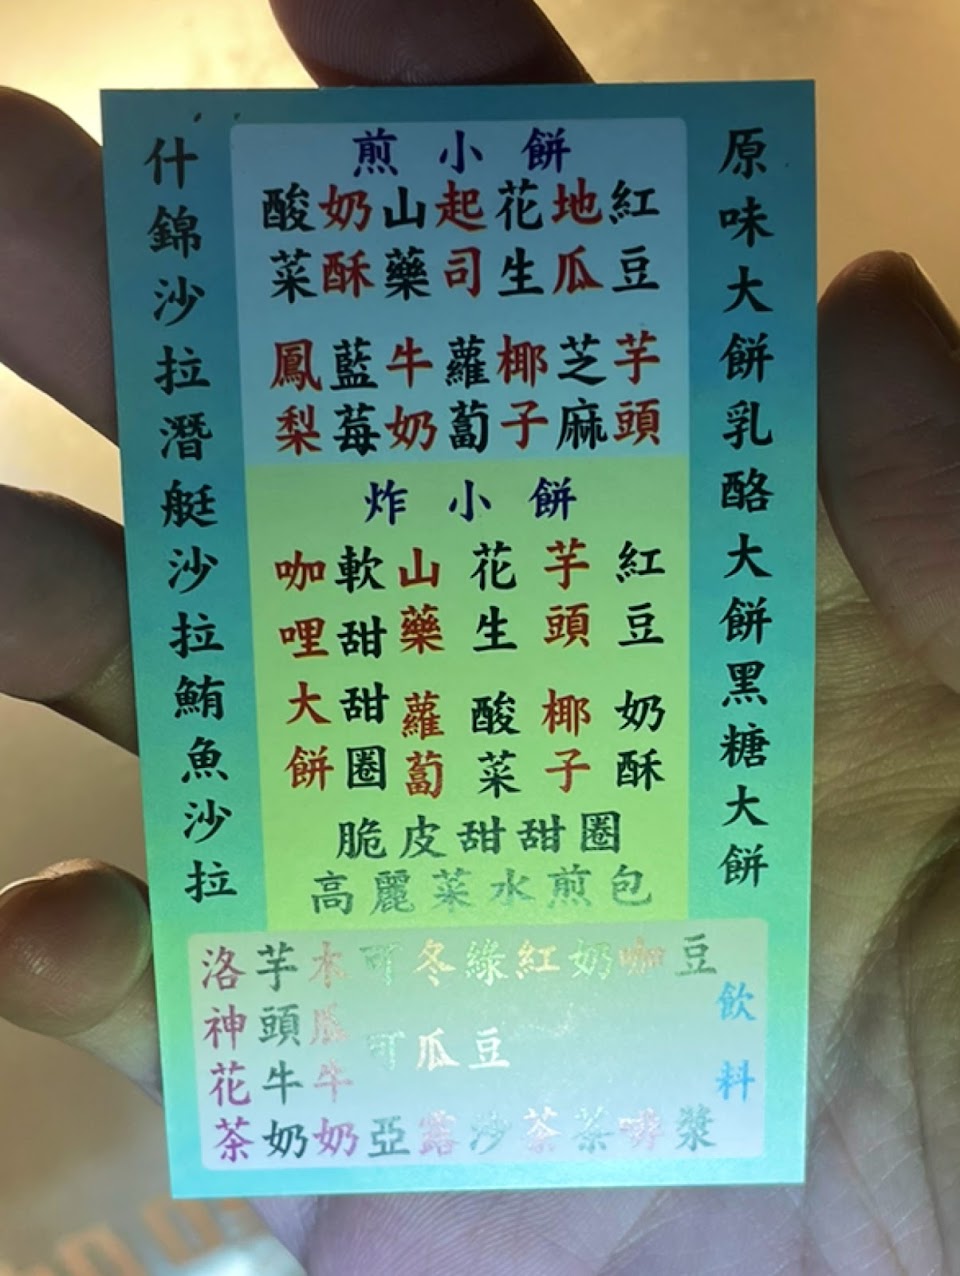 原味大餅乳酪大餅黑糖大餅
煎小餅
紅豆
地瓜
花生
起司
山藥
奶酥
酸菜
芋頭
芝麻
椰子
蘿蔔
牛奶
藍莓
鳳梨
炸小餅
紅豆
芋頭
花生
山藥
奶酥
椰子
酸菜
蘿蔔
軟甜甜圈
咖哩大餅
脆皮甜甜圈
高麗菜水煎包
什錦沙拉潛艇沙拉鮪魚沙拉
飲料
豆漿
咖啡
奶茶
紅茶
綠豆沙
冬瓜露
可可亞
木瓜牛奶
芋頭牛奶
洛神花茶